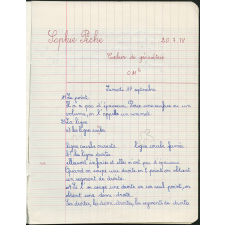 Sophie Pêche
Cahier de géométrie
CM
Samedi 17 septembre
Le point
Il n'a pas d'épaisseur. Pour une surface ou un
volume, on l'appelle un sommet.
La ligne
a) les lignes
ligne courbe ouverte ligne courbe fermée
les lignes droites
elles sont et elle n'ont pas d'épaisseur
Quand on coupe une droite en 2 points on obtient
un segment de droite.
Si l'on coupe une droite en un seul point, on
obtient une demi-droite.
les droites, les demi-droites, les segments de droites